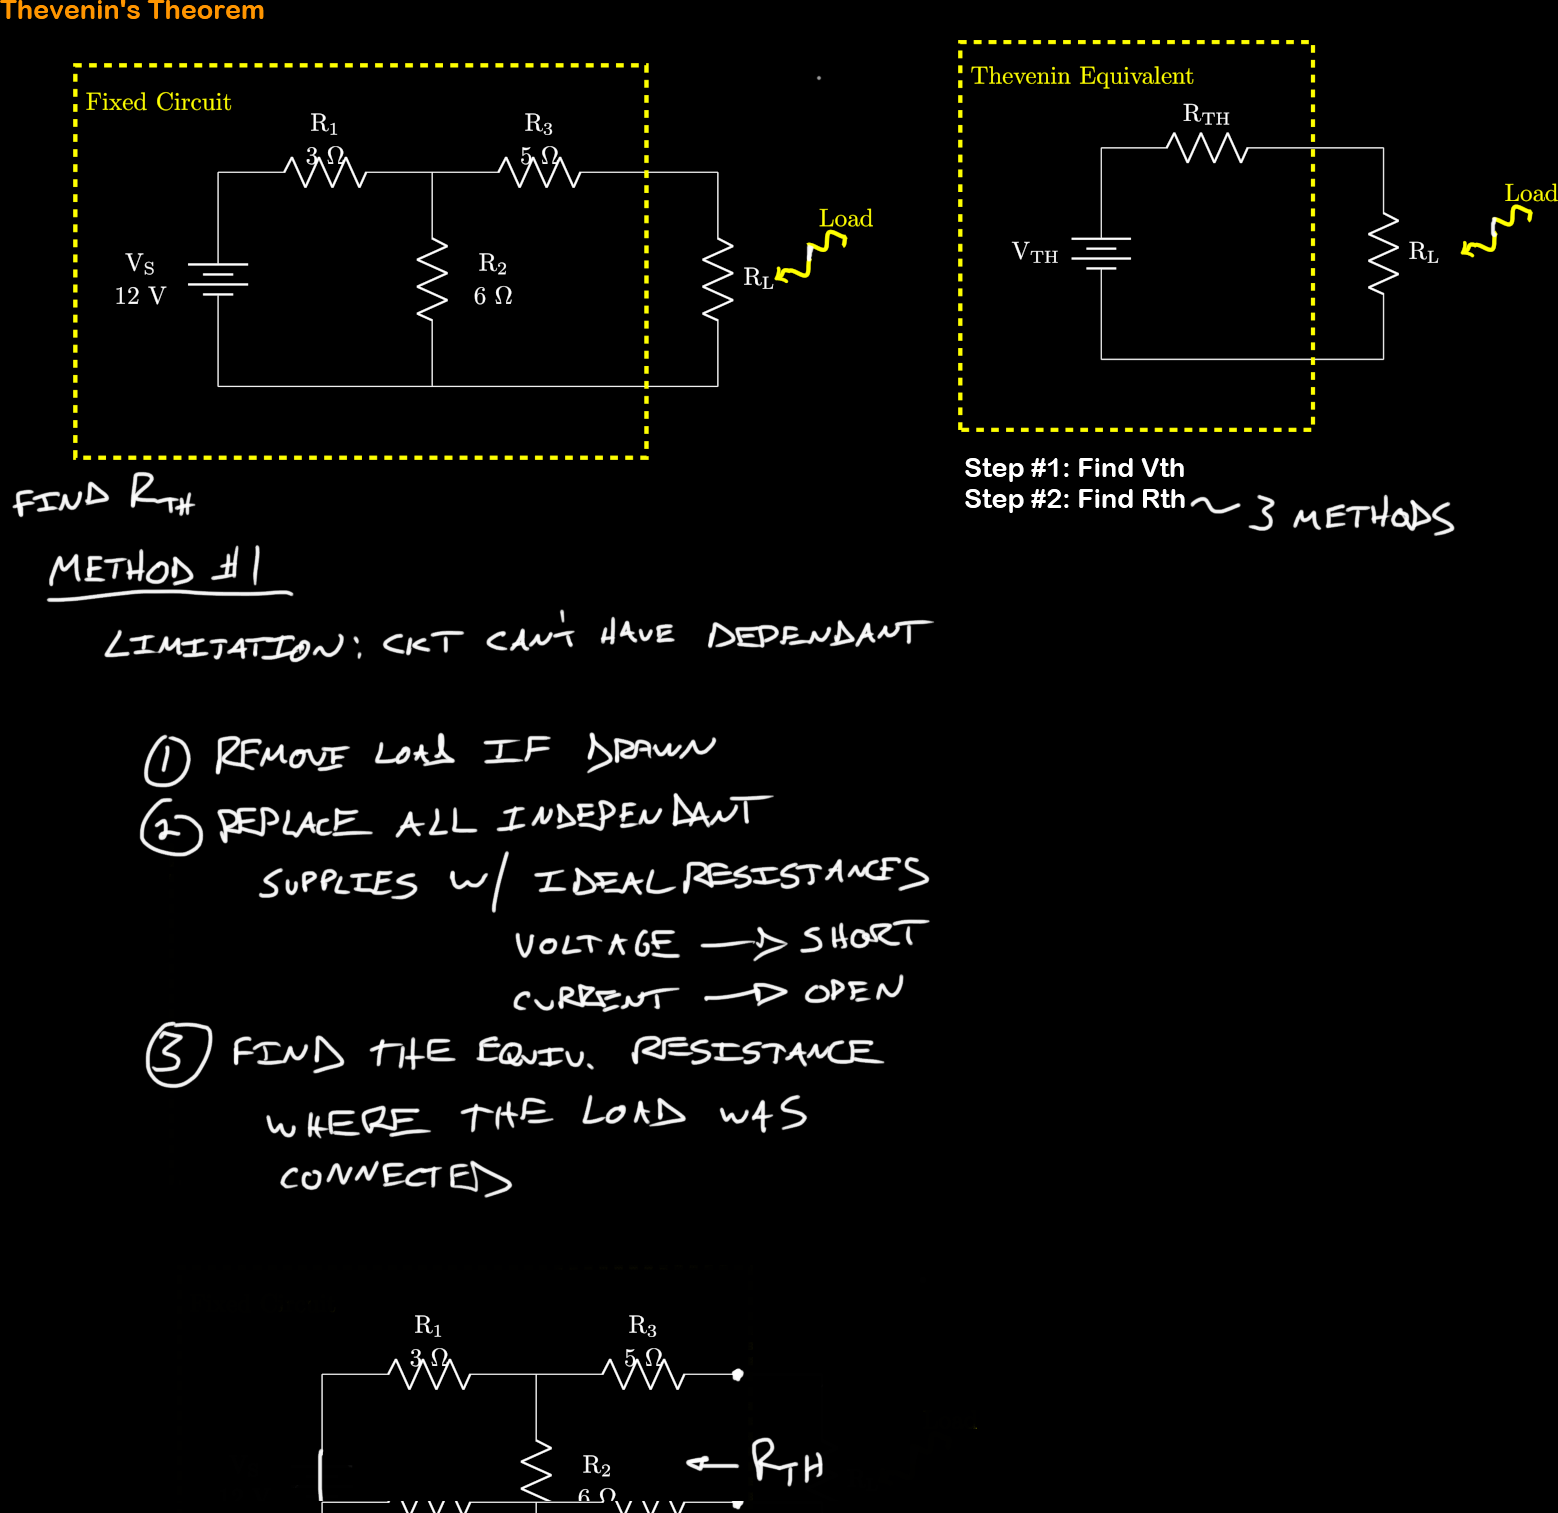 Thevenin's Theorem
Fixed Circuit
R1
3 Ω
R3
5 Ω
VS
12 V
R2
6 Ω
RL
Load
Thevenin Equivalent
RTH
VTH
RL
Load
Step #1: Find Vth
Step #2: Find Rth ~ 3 METHODS
FIND RTH
METHOD #1
LIMITATION: CKT CAN'T HAVE DEPENDANT
① REMOVE LOAD IF DRAWN
② REPLACE ALL INDEPENDANT
SUPPLIES W/ IDEAL RESISTANCES
VOLTAGE → SHORT
CURRENT → OPEN
③ FIND THE EQUIV. RESISTANCE
WHERE THE LOAD WAS
CONNECTED
R1
3 Ω
R3
5 Ω
R2
6 Ω
← RTH